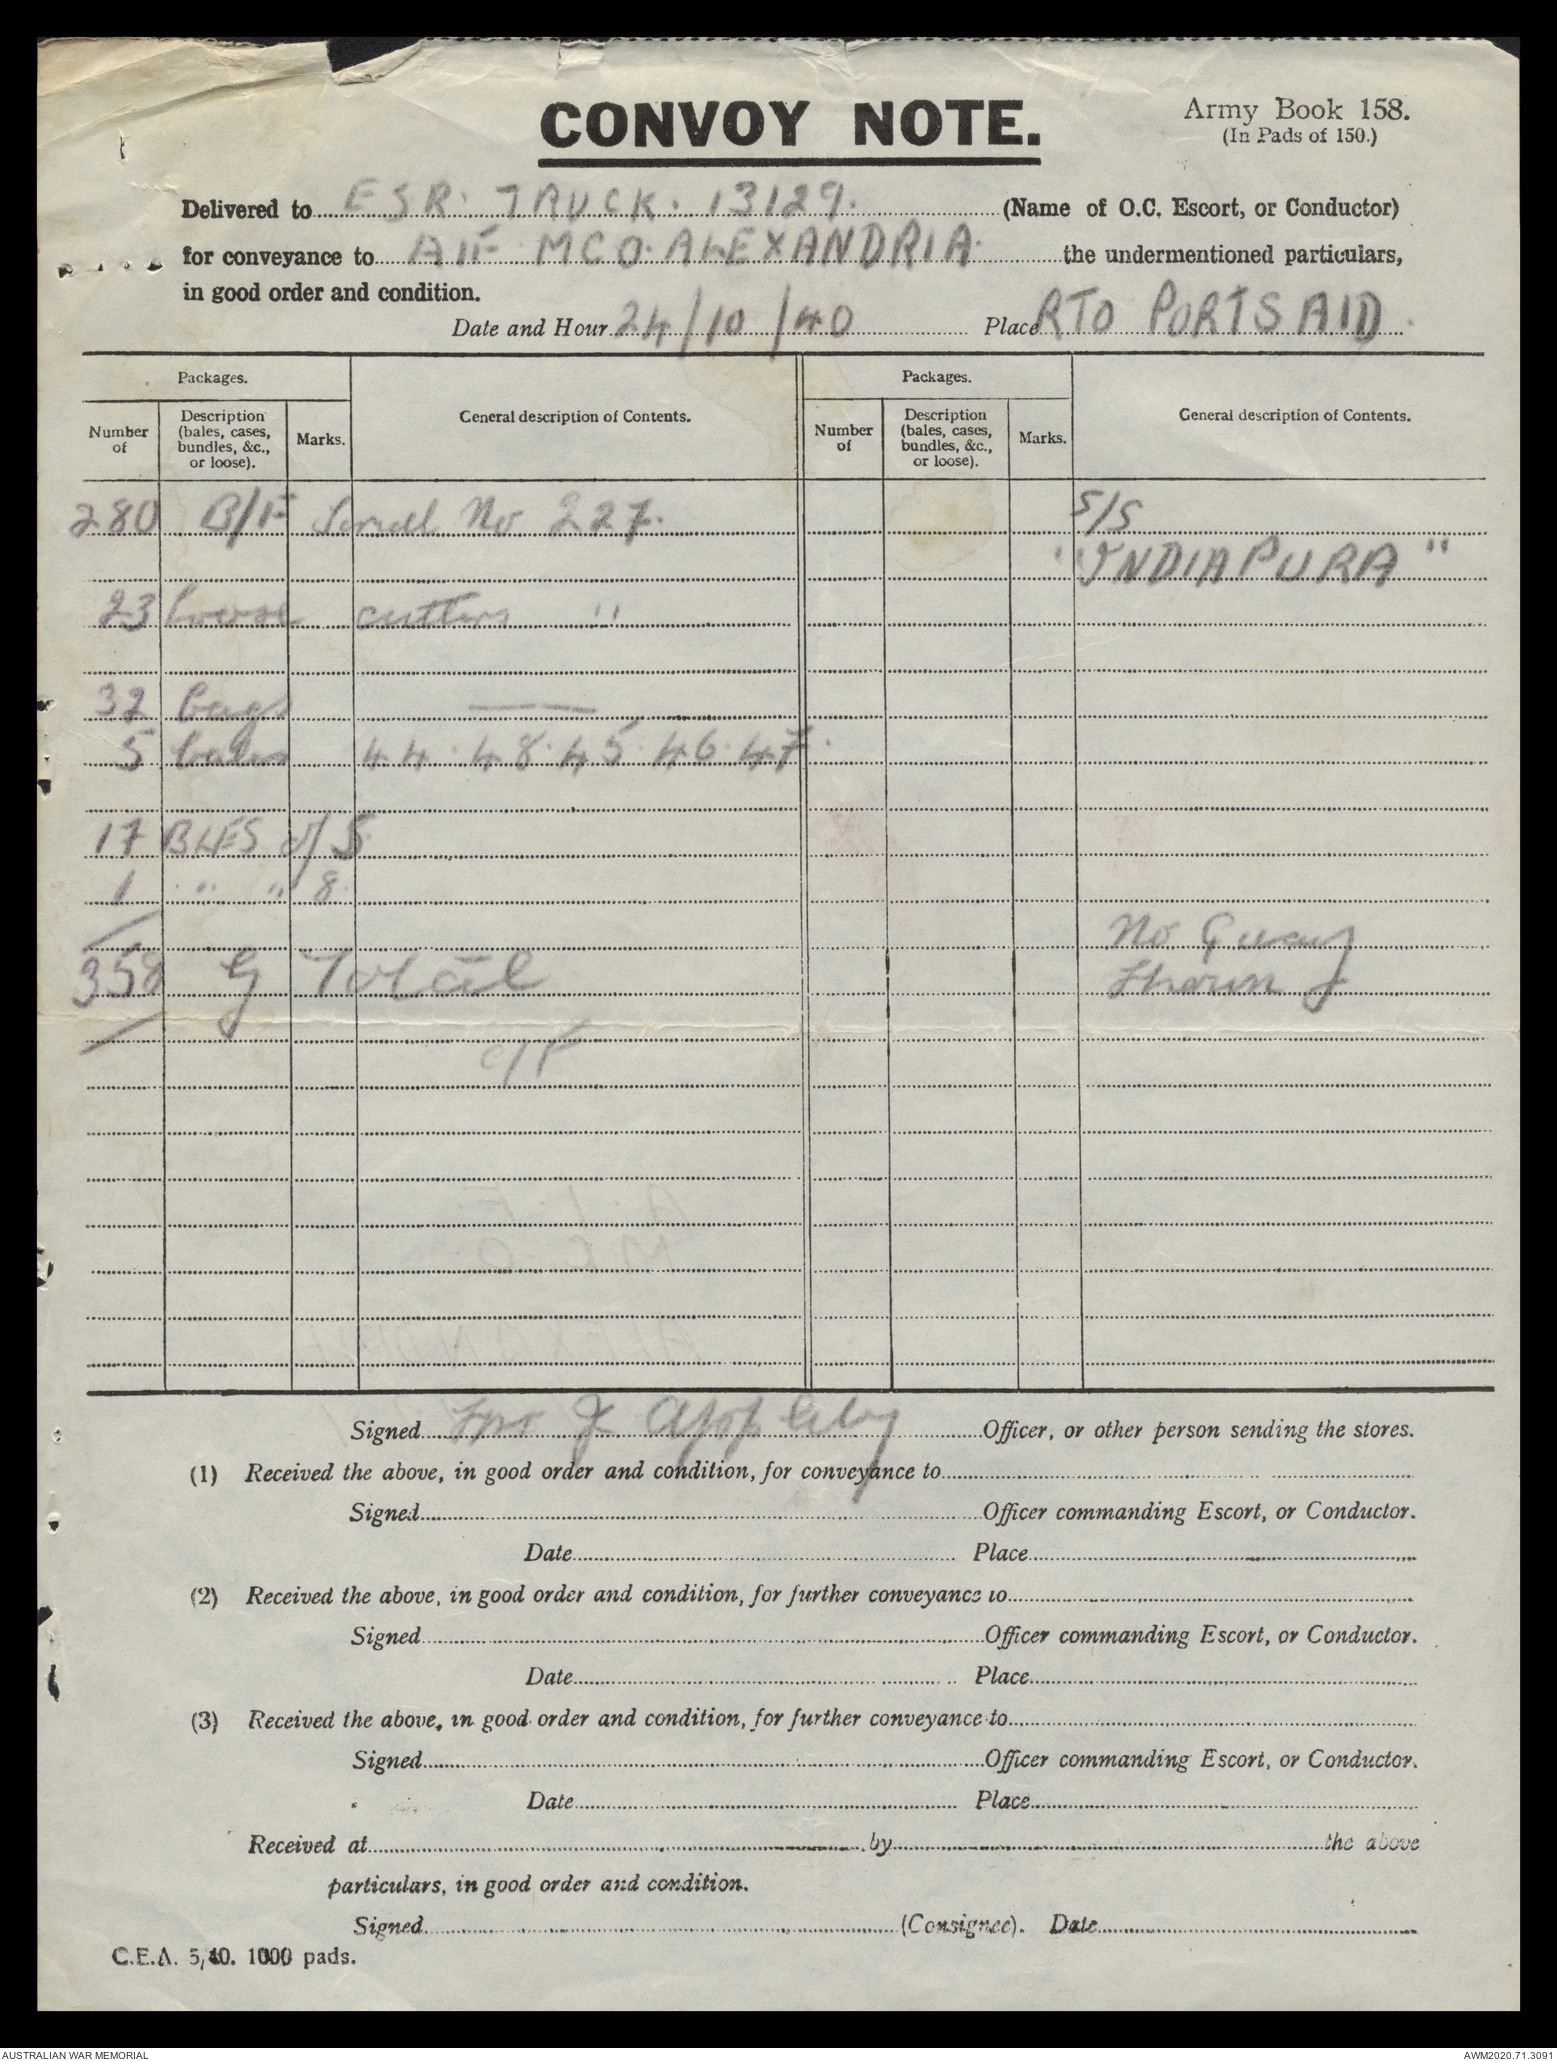 CONVOY NOTE.
Army Book 158.
(In Pads of 150.)
Delivered to ESR. TRUCK. 13129. (Name of O.C. Escort, or Conductor)
for conveyance to AIF MCO. ALEXANDRIA. the undermentioned particulars,
in good order and condition.
Date and Hour 24/10/40 Place RTO PORTSAID.
Packages. Packages.
Number of Description (bales, cases, bundles, &c., or loose). Marks. General description of Contents. Number of Description (bales, cases, bundles, &c., or loose). Marks. General description of Contents.
280 B/F Serial No 227. S/S
"INDIAPURA"
23 loose cutters "
32 bags ——
5 bales 44. 48. 45. 46. 47.
17 BLES d/5
1 " " 8.
No Quay
358 G Total
C/F
A.I.F.
M.C.O.
ALEXANDRIA
Signed J Appleby Officer, or other person sending the stores.
(1) Received the above, in good order and condition, for conveyance to
Signed Officer commanding Escort, or Conductor.
Date Place
(2) Received the above, in good order and condition, for further conveyance to
Signed Officer commanding Escort, or Conductor.
Date Place
(3) Received the above, in good order and condition, for further conveyance to
Signed Officer commanding Escort, or Conductor.
Date Place
Received at by the above
particulars, in good order and condition.
Signed (Consignee). Date
C.E.A. 5/40. 1000 pads.
AUSTRALIAN WAR MEMORIAL
AWM2020.71.3091